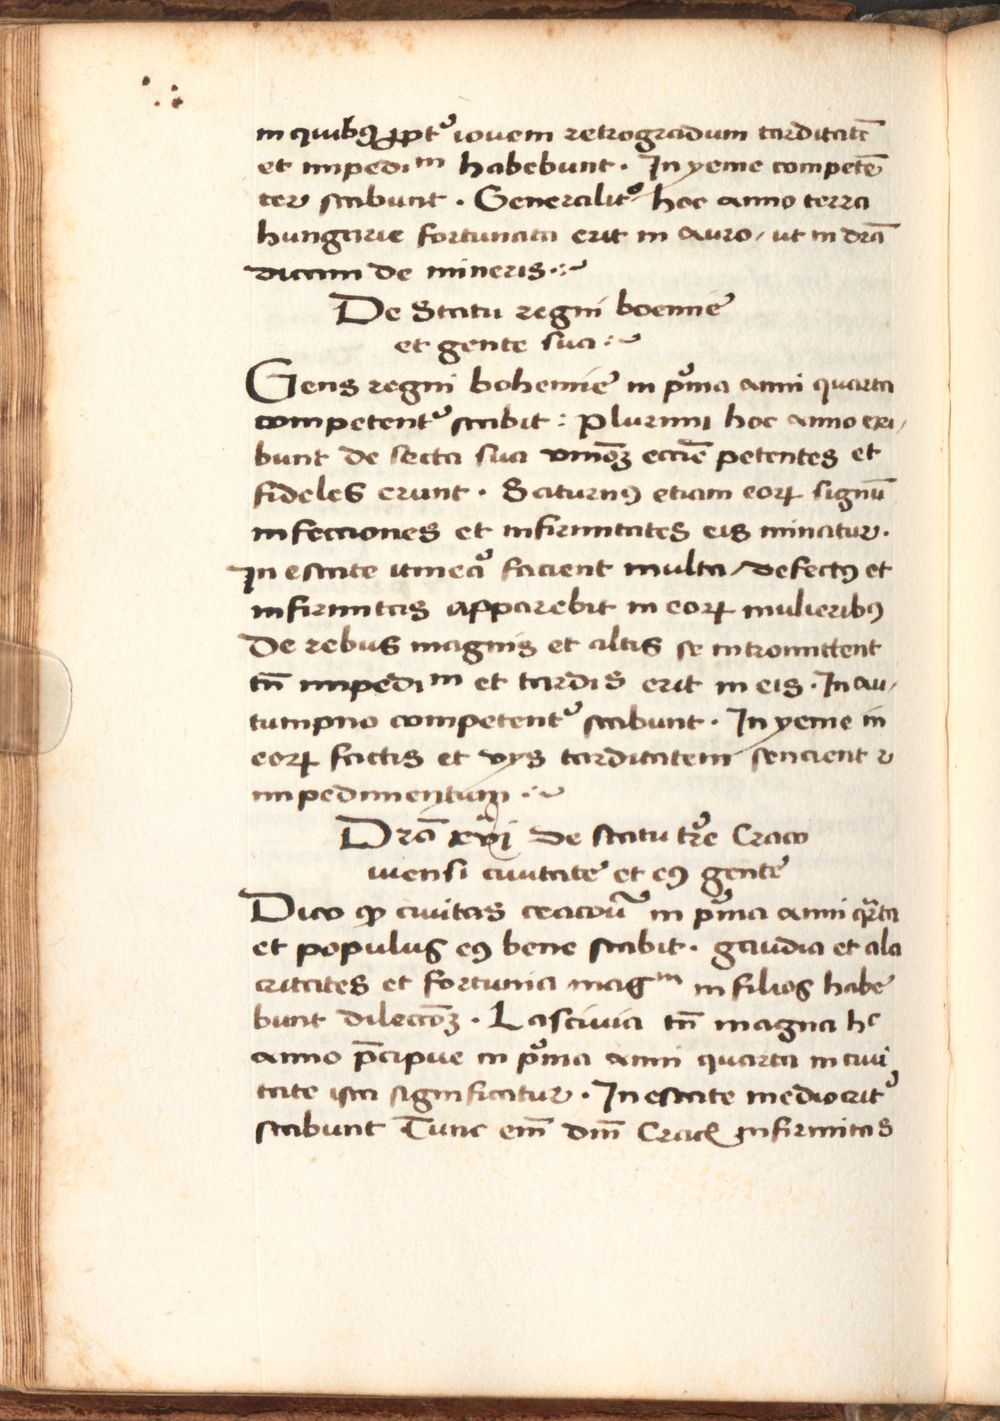 in quibꝯ ꝓpt᷑ iouem retrogradum tarditatē
et impediᵐ habebunt. In yeme competē
ter stabunt. Generalit᷑ hoc anno terra
hungarie fortunata erit in auro, ut in drā
dicam de mineris.
De Statu regni boemie
et gente sua:
Gens regni bohemie in pͥma anni quarta
competent᷑ stabit: Plurimi hoc anno exi/
bunt de secta sua vnioꝫ eccīe petentes et
fideles erunt. Saturnꝯ etiam eoꝝ signū
infecciones et infirmitates eis minatur.
In estate itineͣ facient multa, defectꝯ et
infirmitas apparebit in eoꝝ mulieribꝯ
De rebus magnis et altis se intromittent
tn̄ impediᵐ et tardis erit in eis. In au/
tumpno competent᷑ stabunt. In yeme in
eoꝝ factis et vys tarditatem sencient ⁊
impedimentum.
Drā xvi de statu tr̄e Craco
uiensi ciuitate et eꝯ gente
Dico ꝙ ciuitas cracou᷑ in pͥma anni qͣrta
et populus eꝯ bene stabit. gaudia et ala
critates et fortunia magᵐ in filios habe
bunt dilectōꝫ. Lasciuia tn̄ magna hᶜ
anno p̄cipue in pͥma anni quarta in ciui
tate ista significatur. In estate mediocrit᷑
stabunt Tunc em̄ dm̄ Crac infirmitas